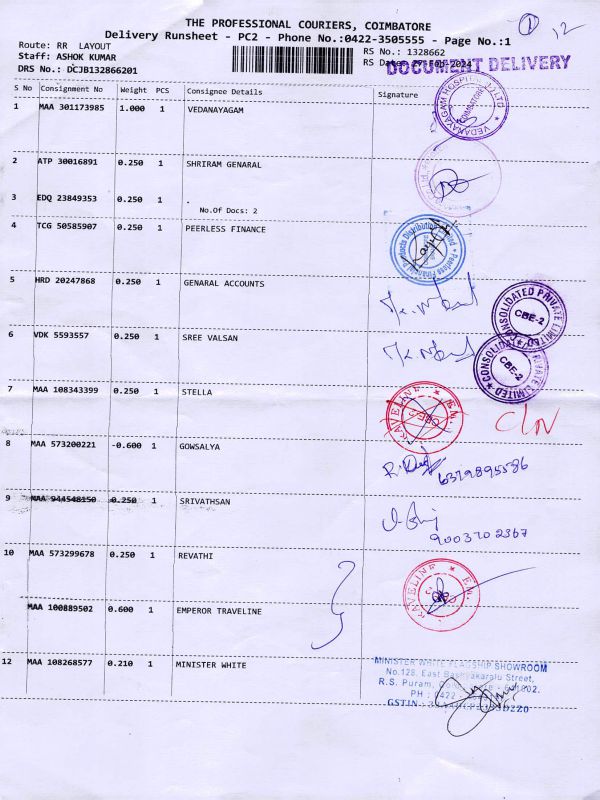 THE PROFESSIONAL COURIERS, COIMBATORE
1 12
Delivery Runsheet - PC2 - Phone No.:0422-3505555 - Page No.:1
Route: RR LAYOUT
RS No.: 1328662
Staff: ASHOK KUMAR
RS Date: 27-Feb-2024
DOCUMENT DELIVERY
DRS No.: DCJB132866201
S No Consignment No Weight PCS Consignee Details Signature
1 MAA 301173985 1.000 1 VEDANAYAGAM
VEDANAYAGAM HOSPITAL (P) LTD COIMBATORE
2 ATP 30016891 0.250 1 SHRIRAM GENARAL
3 EDQ 23849353 0.250 1 .
No.Of Docs: 2
4 TCG 50585907 0.250 1 PEERLESS FINANCE
Peerless Financial Products Distribution Limited
5 HRD 20247868 0.250 1 GENARAL ACCOUNTS
CONSOLIDATED PRIVATE LIMITED
CBE-2
6 VDK 5593557 0.250 1 SREE VALSAN
CONSOLIDATED PRIVATE LIMITED
CBE-2
7 MAA 108343399 0.250 1 STELLA
CBE-2
8 MAA 573200221 -0.600 1 GOWSALYA
6379895536
9 MAA 944548150 0.250 1 SRIVATHSAN
9003702367
10 MAA 573299678 0.250 1 REVATHI
MAA 100889502 0.600 1 EMPEROR TRAVELINE
12 MAA 108268577 0.210 1 MINISTER WHITE
MINISTER WHITE FLAGSHIP SHOWROOM
No.128, East Bashyakaralu Street,
R.S. Puram,
PH : 0422
GSTIN :